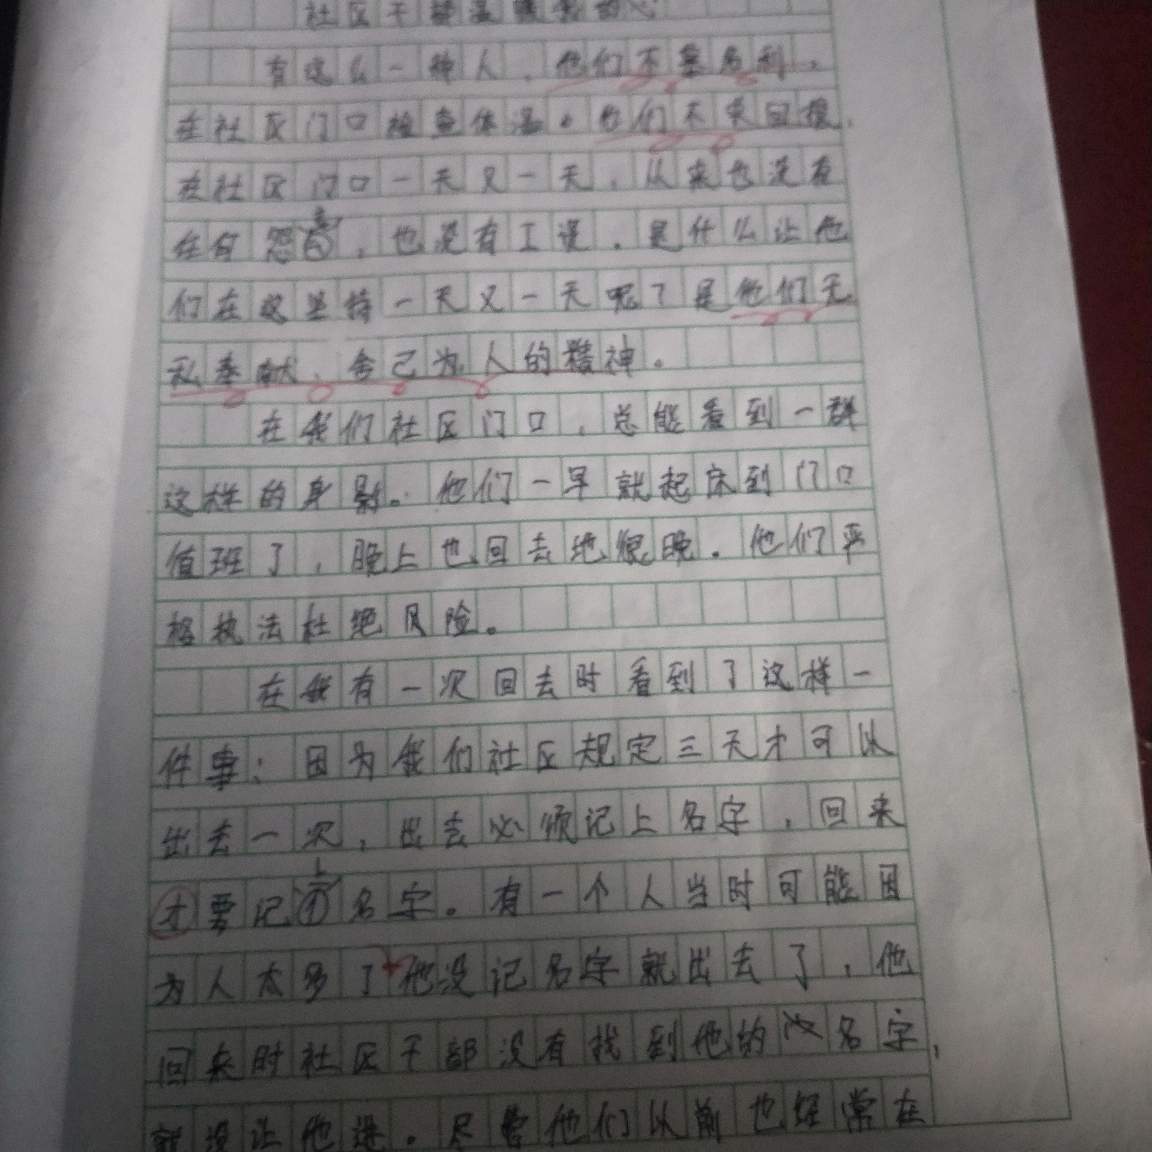 社区干部温暖我的心
有这么一种人，他们不靠名利，
在社区门口检查体温。他们不求回报，
在社区门口一天又一天，从来也没有
任何怨言，也没有工资。是什么让他
们在这坚持一天又一天呢？是他们无
私奉献、舍己为人的精神。
在我们社区门口，总能看到一群
这样的身影。他们一早就起床到门口
值班了，晚上也回去地很晚。他们严
格执法杜绝风险。
在我有一次回去时看到了这样一
件事：因为我们社区规定三天才可以
出去一次，出去必须记上名字，回来
才要记上名字。有一个人当时可能因
为人太多了他没记名字就出去了，他
回来时社区干部没有找到他的名字，
就没让他进。尽管他们以前也经常在